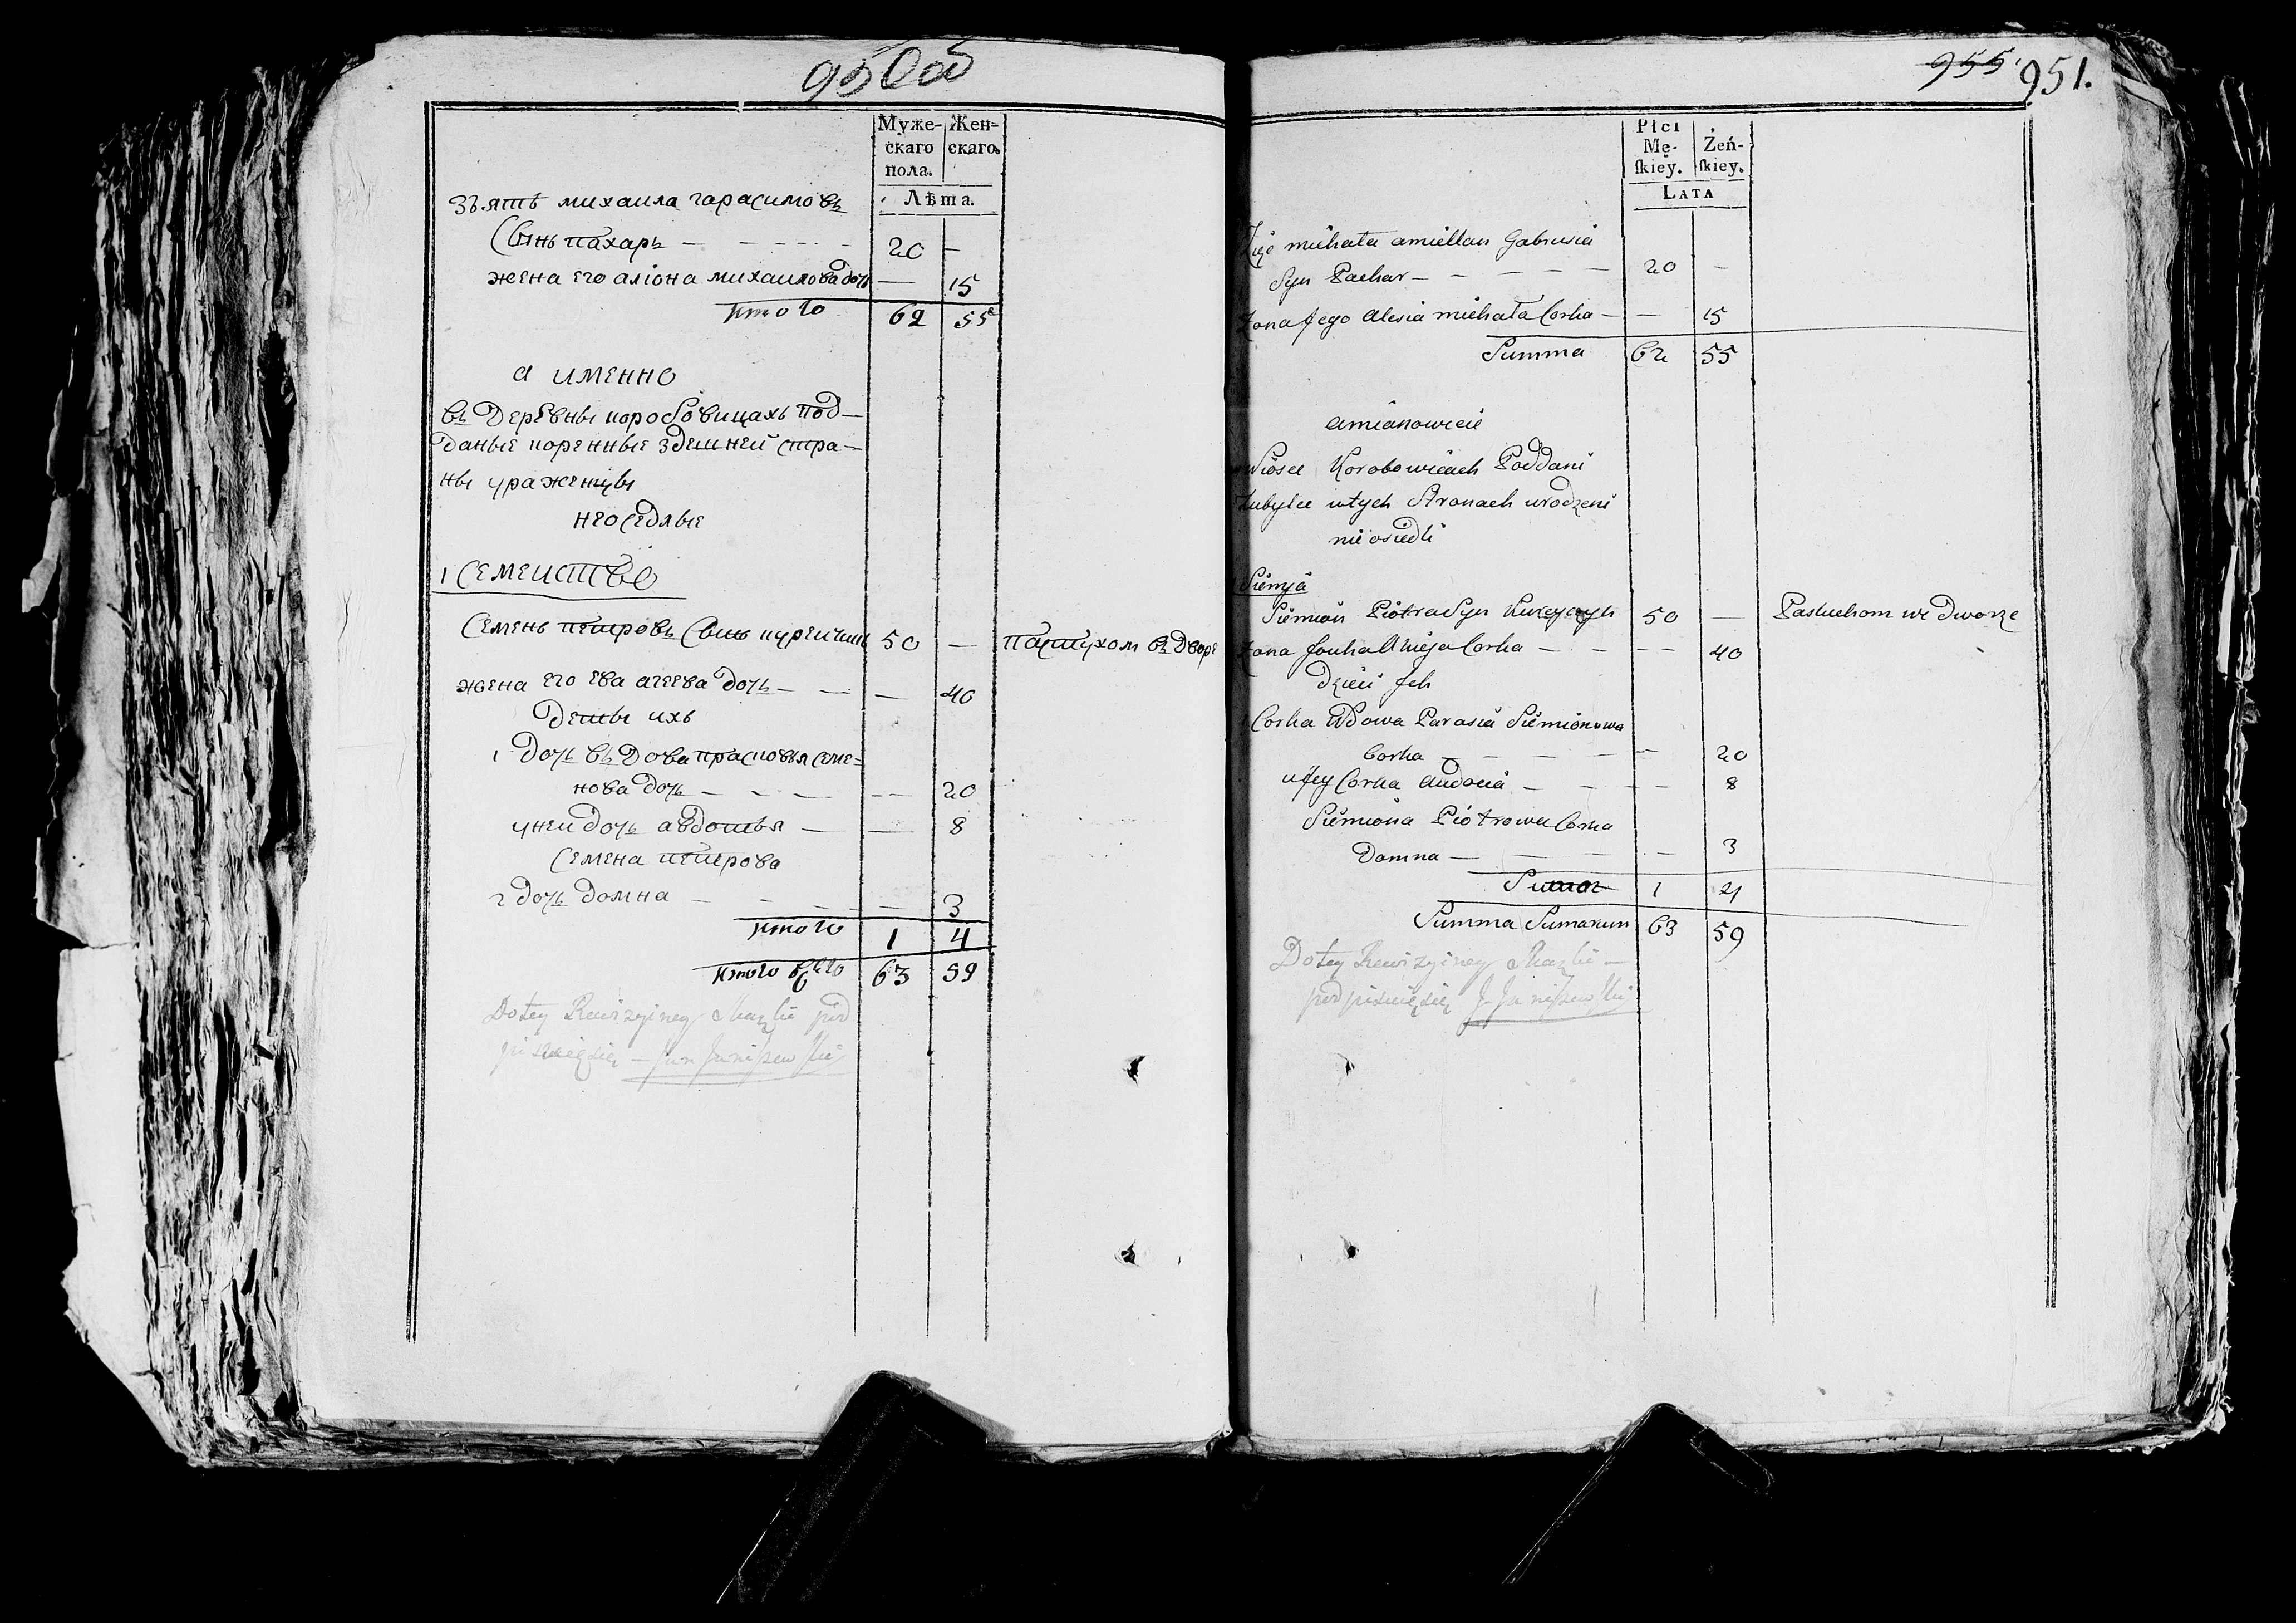 950об
Муже- Жен-
скаго скаго.
пола.
Лѣта.
зъять михаила гарасимовъ
сынь пахарь — — — 20 —
жена его аліона михаилова дочь — 15
итого 62 55
а именно
въ деревны коробовицахъ под-
даные коренные здешней стра-
ны ураженцы
неоседлые
1 семейство
Семень петровъ сынь курейчикъ 50 — пастухом въ дворе
жена его ева агеева дочь — — — 40
деты ихъ
1 дочь въдова прасковья семе-
нова дочь — — — — 20
у неи дочь авдотья — — 8
семена петрова
2 дочь домна — — — — 3
итого 1 4
итого всего 63 59
Do tey Rewizyiney Skazki pod
pisuięsię — Jan Janiszewski
955. 951.
Płci
Mę- Żeń-
ſkiey. ſkiey.
Lata
Zięć michała amiellan Gabrusia
Syn Pachar — — — — — 20 —
Zona Jego Alesia michała Corka — — 15
Summa 62 55
amianowicie
wWiosce Korobowicach Poddani
Zubylce wtych Stronach urodzeni
nie osiedli
Siemja
Siemion Piotra Syn Kureyczyk 50 — Pastuchom we Dworze
Zona Jeuka Ahieja Corka — — — — 40
Dzieci Jch
1 Corka Wdowa Parasia Siemionowa
Corka — — — — — — 20
u Jey Corka Audocia — — — — 8
Siemiona Piotrowa Corka
Domna — — — — — 3
Suma 1 4
Summa Sumarum 63 59
Do tey Rewizyiney Skazki —
podpisuięsię J. Janiszewski